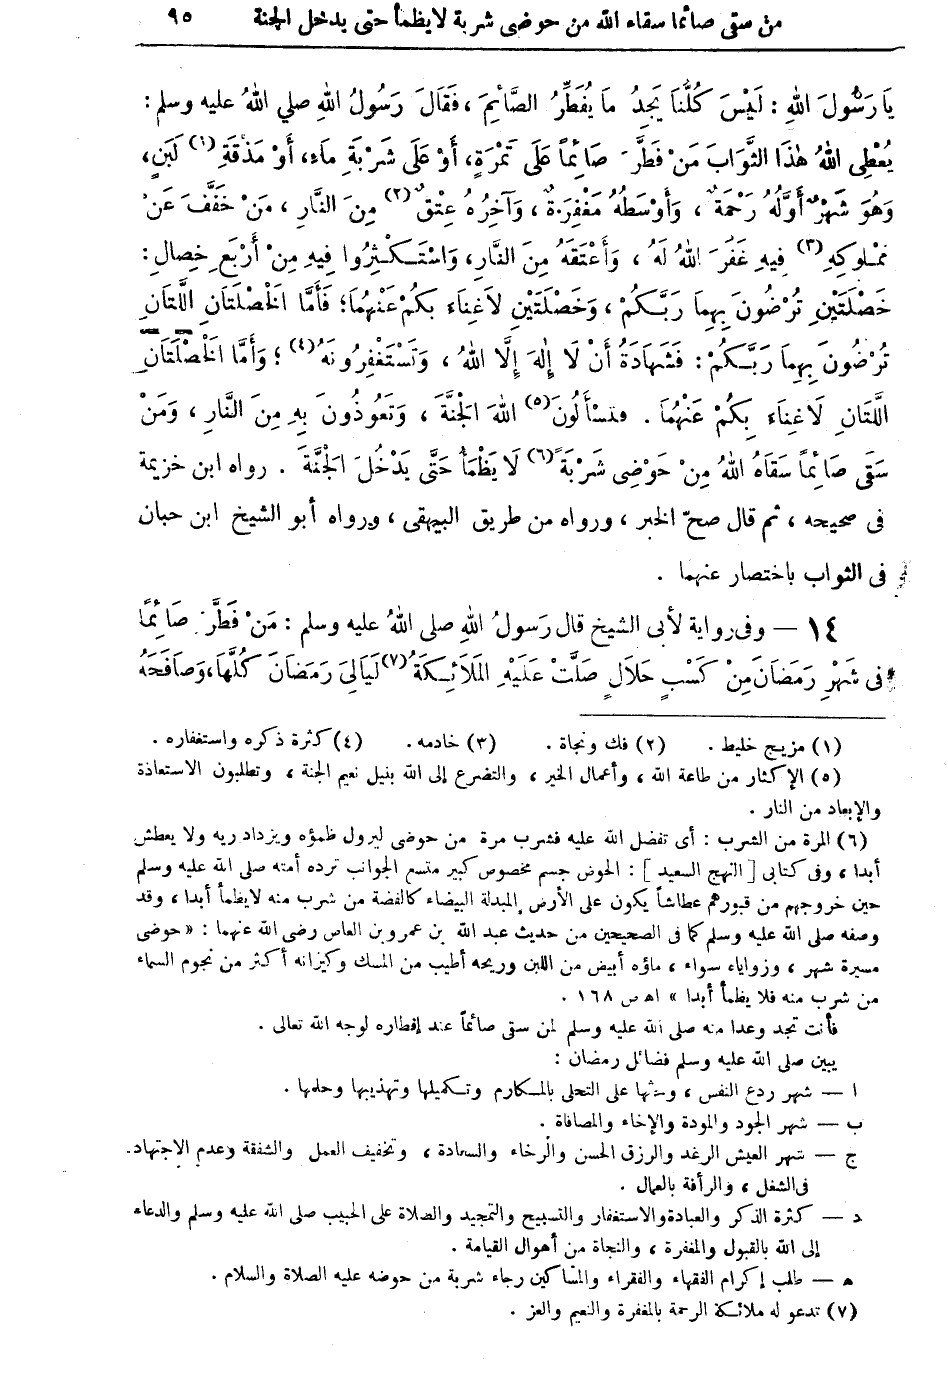 من سقى صائما سقاه الله من حوضى شربة لايظمأ حتى يدخل الجنة ٩٥
يَا رَسُولَ اللهِ : لَيْسَ كُلُّنَا يَجِدُ مَا يُفَطِّرُ الصَّائِمَ ، فَقَالَ رَسُولُ اللهِ صلي اللهُ عليه وسلم :
يُعْطِى اللهُ هٰذَا الثَّوَابَ مَنْ فَطَّرَ صَائِماً عَلَى تَمْرَةٍ، أَوْ عَلَى شَرْبَةِ مَاءٍ، أَوْ مَذْقَةِ (١) لَبَنٍ،
وَهُوَ شَهْرٌ أَوَّلُهُ رَحْمَةٌ ، وَأَوْسَطُهُ مَغْفِرَةٌ ، وَآخِرُهُ عِتْقٌ (٢) مِنَ النَّارِ ، مَنْ خَفَّفَ عَنْ
مَمْلُوكِهِ (٣) فِيهِ غَفَرَ اللهُ لَهُ ، وَأَعْتَقَهُ مِنَ النَّارِ، وَاسْتَكْثِرُوا فِيهِ مِنْ أَرْبَعِ خِصَالٍ :
خَصْلَتَيْنِ تُرْضُونَ بِهِمَا رَبَّكُمْ ، وَخَصْلَتَيْنِ لَاغِنَاءَ بِكُمْ عَنْهُمَا؛ فَأَمَّا الْخَصْلَتَانِ اللَّتَانِ
تُرْضُونَ بِهِمَا رَبَّكُمْ : فَشَهَادَةُ أَنْ لَا إِلٰهَ إِلَّا اللهُ ، وَتَسْتَغْفِرُونَهُ (٤) ؛ وَأَمَّا الْخَصْلَتَانِ
اللَّتَانِ لَاغِنَاءَ بِكُمْ عَنْهُمَا . فَتَسْأَلُونَ (٥) اللهَ الْجَنَّةَ ، وَتَعُوذُونَ بِهِ مِنَ النَّارِ ، وَمَنْ
سَقَى صَائِماً سَقَاهُ اللهُ مِنْ حَوْضِى شَرْبَةً (٦) لَا يَظْمَأُ حَتَّى يَدْخُلَ الْجَنَّةَ . رواه ابن خزيمة
فى صحيحه ، ثم قال صحّ الخبر ، ورواه من طريق البيهقى ، ورواه أبو الشيخ ابن حبان
فى الثواب باختصار عنهما .
١٤ — وفى رواية لأبى الشيخ قال رَسُولُ اللهِ صلى اللهُ عليه وسلم : مَنْ فَطَّرَ صَائِمًا
فى شَهْرِ رَمَضَانَ مِنْ كَسْبٍ حَلَالٍ صَلَّتْ عَلَيْهِ الْمَلَائِكَةُ (٧) لَيَالِىَ رَمَضَانَ كُلَّهَا، وَصَافَحَهُ
(١) مزيج خليط . (٢) فك ونجاة . (٣) خادمه . (٤) كثرة ذكره واستغفاره .
(٥) الإكثار من طاعة الله ، وأعمال الخير ، والتضرع إلى الله بنيل نعيم الجنة ، وتطلبون الاستعاذة
والإبعاد من النار .
(٦) المرة من الشرب : أى تفضل الله عليه فشرب مرة من حوضى ليزول ظمؤه ويزداد ريه ولا يعطش
أبدا ، وفى كتابى [ النهج السعيد ] : الحوض جسم مخصوص كبير متسع الجوانب ترده أمته صلى الله عليه وسلم
حين خروجهم من قبورهم عطاشاً يكون على الأرض المبدلة البيضاء كالفضة من شرب منه لايظمأ أبدا ، وقد
وصفه صلى الله عليه وسلم كما فى الصحيحين من حديث عبد الله بن عمرو بن العاص رضى الله عنهما : « حوضى
مسيرة شهر ، وزواياه سواء ، ماؤه أبيض من اللبن وريحه أطيب من المسك وكيزانه أكثر من نجوم السماء
من شرب منه فلا يظمأ أبدا » اهـ ص ١٦٨ .
فأنت تجد وعدا منه صلى الله عليه وسلم لمن سقى صائماً عند إفطاره لوجه الله تعالى .
يبين صلى الله عليه وسلم فضائل رمضان :
ا — شهر ردع النفس ، وحثها على التحلى بالمكارم وتكميلها وتهذيبها وحلمها .
ب — شهر الجود والمودة والإخاء والمصافاة .
ج — شهر العيش الرغد والرزق الحسن والرخاء والسعادة ، وتخفيف العمل والشفقة وعدم الاجتهاد
فى الشغل ، والرأفة بالعمال .
د — كثرة الذكر والعبادة والاستغفار والتسبيح والتمجيد والصلاة على الحبيب صلى الله عليه وسلم والدعاء
إلى الله بالقبول والمغفرة ، والنجاة من أهوال القيامة .
ه — طلب إكرام الفقهاء والفقراء والمساكين رجاء شربة من حوضه عليه الصلاة والسلام .
(٧) تدعو له ملائكة الرحمة بالمغفرة والنعيم والعز .